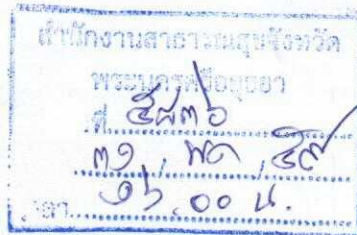 สำนักงานสาธารณสุขจังหวัด
พระนครศรีอยุธยา
ที่ ๕๘๓๖
๓๑ พค ๕๙
เวลา ๑๖.๐๐ น.